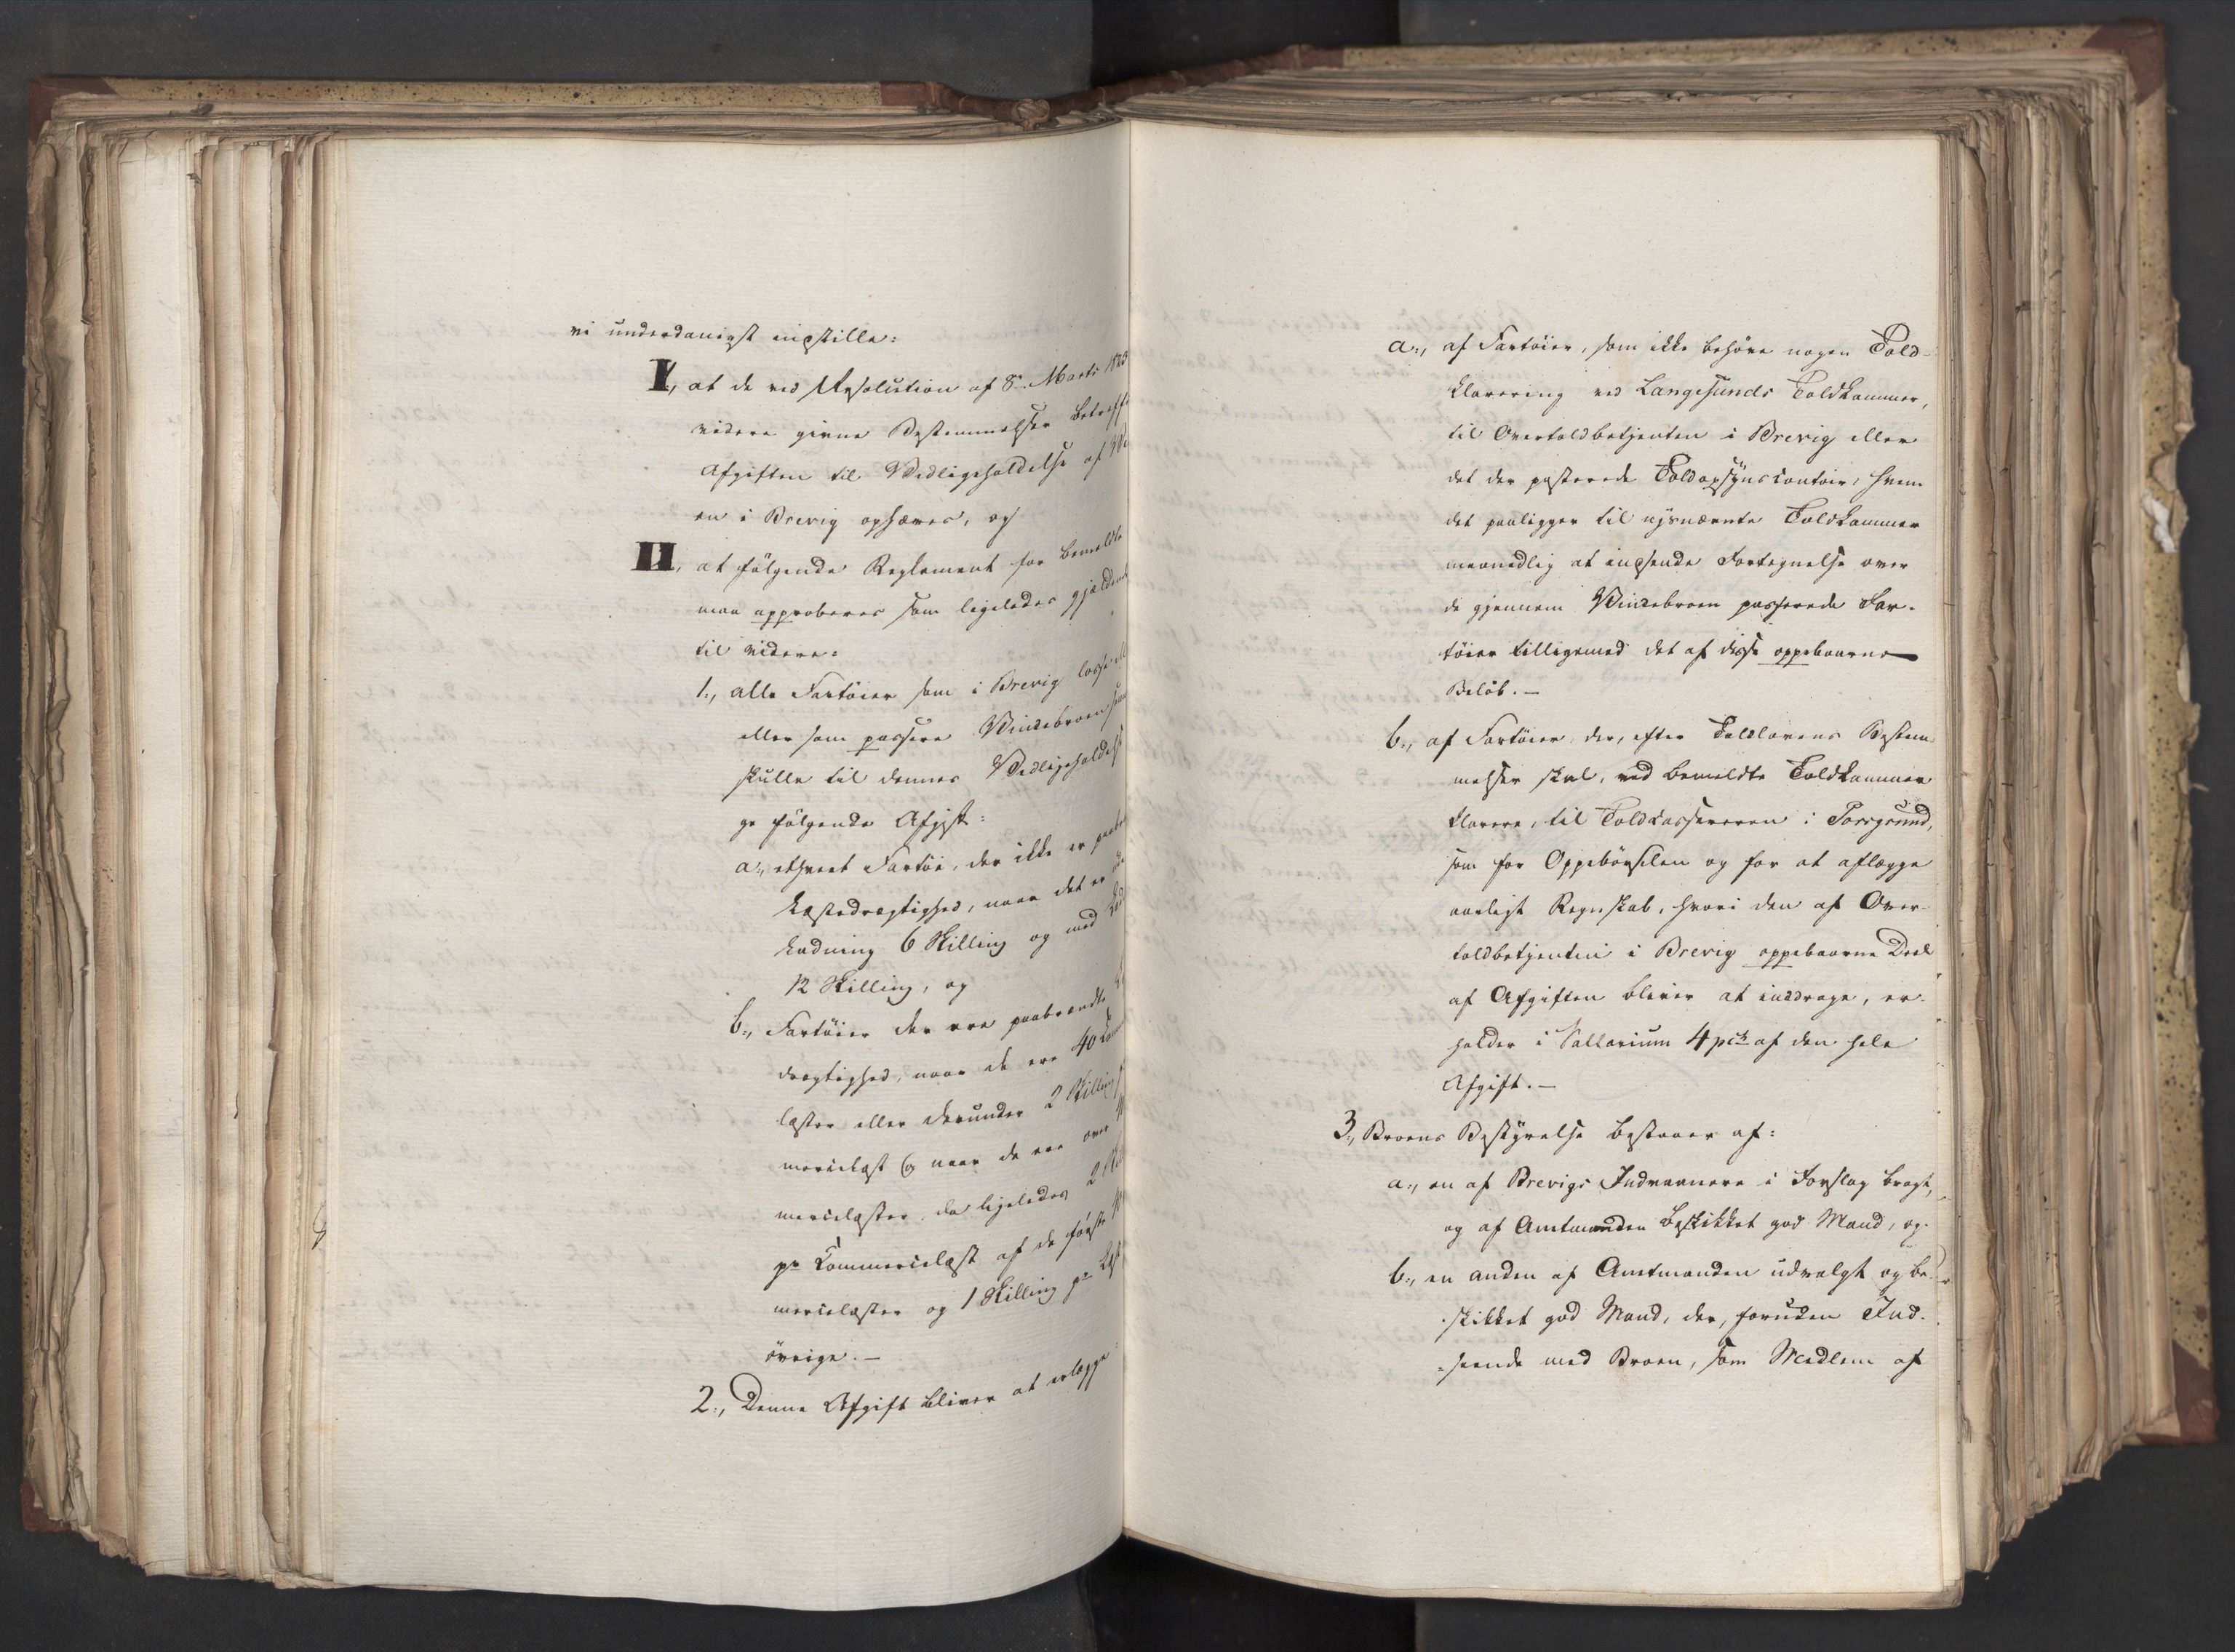 vi underdanigst indstille:
I, at de ved Resolution af 8de Marts 1823
videre givne Bestemmelser betreff
Afgiften til Vedligeholdelse af
en i Brevig ophæves, og
II, at følgende Reglement for bemeldte
maa approberes som ligeledes gjeldende
til videre:
1., alle Fartöier som i Brevig losse
eller som passere Vindebroen
skulle til dennes Vedligeholdelse
ge følgende Afgift:
a., ethvert Fartöi, der ikke er
Læstedrægtighed, naar det er
Ladning 6 Skilling og med
12 Skilling, og
b., Fartöier der ere paabrændte
drægtighed, naar de ere 40
læster eller derunder 2 Skilling
mercelæst og naar de ere over
mercelæster da ligeledes 2
pr Commercelæst af de første
mercelæster og 1 Skilling pr Læst
övrige. –
2., Denne Afgift bliver at erlægge
a., af Fartöier, som ikke behöve nogen Told-
klarering ved Langesunds Toldkammer,
til Overtoldbetjenten i Brevig eller
det der posterede Toldopsynscontoir, hvem
det paaligger til nysnævnte Toldkammer
maanedlig at indsende Fortegnelse over
de gjennem Vindebroen passerede Far-
töier tilligemed det af disse oppebaarne
Beløb. –
b., af Fartöier der, efter Toldlovens Bestem
melser skal, ved bemeldte Toldkammer
klarere, til Toldkassereren i Porsgrund,
som for Oppebörselen og for at aflægge
aarligt Regnskab, hvori den af Over-
toldbetjenten i Brevig oppebaarne Deel
af Afgiften bliver at inddrage, er-
holder i Sallarium 4 pct af den hele
Afgift. –
3., Broens Bestyrelse bestaaer af:
a., en af Brevigs Indvaanere i Forslag bragt,
og af Amtmanden beskikket god Mand, og
b., en anden af Amtmanden udvalgt og be-
skikket god Mand, der, foruden Ind-
seende med Broen, som Medlem af